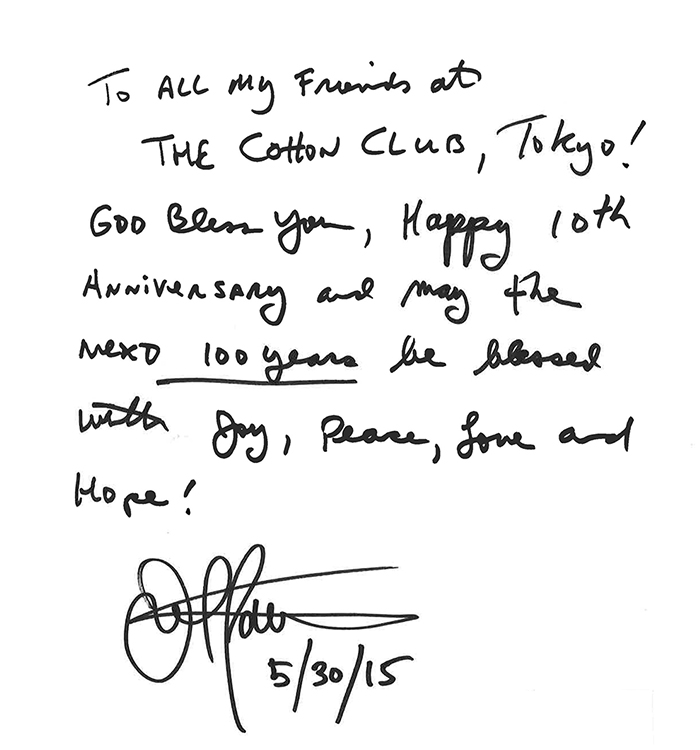 To ALL My Friends at
THE COTTON CLUB, Tokyo!
GOD Bless You, Happy 10th
Anniversary and may the
next 100 years be blessed
with Joy, Peace, Love and
Hope!
5/30/15